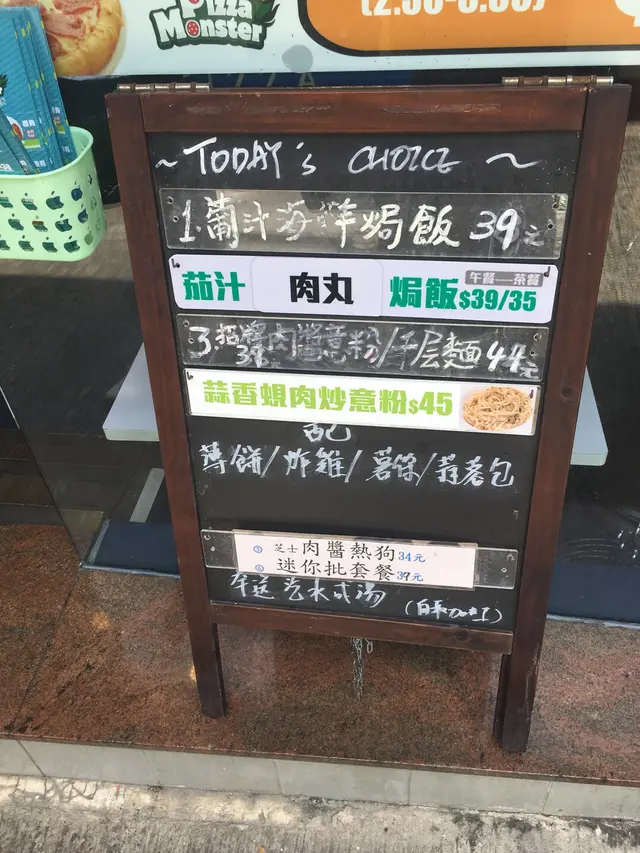 Pizza
Monster
(2.30-6.00)
~ TODAY's CHOICE ~
1. 葡汁海鮮焗飯 39元
茄汁 肉丸 焗飯 $39/35
午餐 茶餐
3 招牌肉醬意粉/千层麵 44元
39
蒜香蜆肉炒意粉$45
配
薄餅/炸雞/薯條/蒜蓉包
⑤ 芝士肉醬熱狗 34元
⑥ 迷你批套餐 39元
汽水或湯